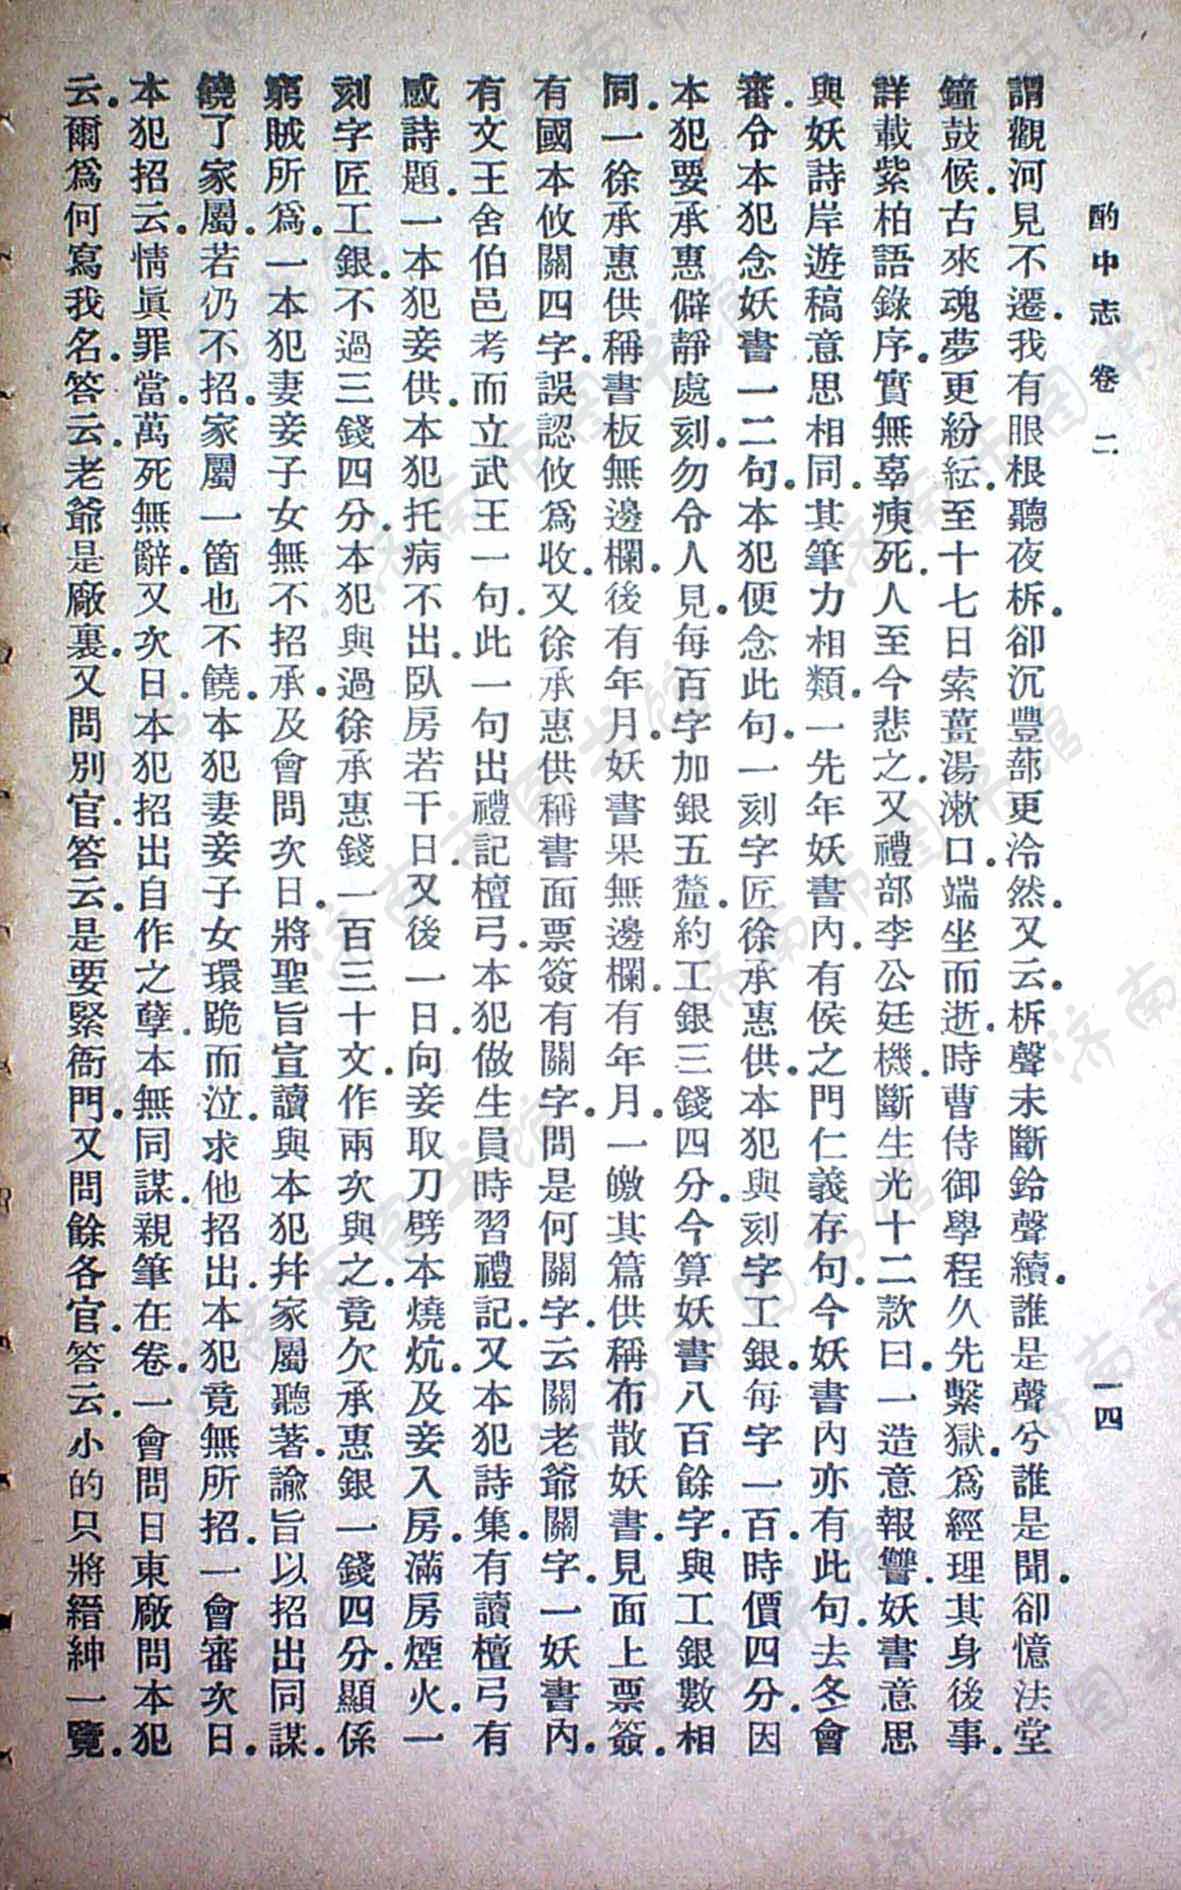 酌中志 卷二 一四
謂觀河見不遷.我有眼根聽夜柝.卻沉豐蔀更泠然.又云.柝聲未斷鈴聲續.誰是聲兮誰是聞.卻憶法堂
鐘鼓候.古來魂夢更紛紜.至十七日索薑湯漱口.端坐而逝.時曹侍御學程久先繫獄.爲經理其身後事.
詳載紫柏語錄序.實無辜瘐死.人至今悲之.又禮部李公廷機.斷生光十二款曰.一造意報讐.妖書意思
與妖詩岸遊稿意思相同.其筆力相類.一先年妖書內.有侯之門仁義存句.今妖書內亦有此句.去冬會
審.令本犯念妖書一二句.本犯便念此句.一刻字匠徐承惠供.本犯與刻字工銀.每字一百.時價四分.因
本犯要承惠僻靜處刻.勿令人見.每百字加銀五釐.約工銀三錢四分.今算妖書八百餘字.與工銀數相
同.一徐承惠供稱書板無邊欄.後有年月.妖書果無邊欄.有年月.一繳其篇供稱布散妖書.見面上票簽.
有國本攸關四字.誤認攸爲收.又徐承惠供稱書面票簽有關字.問是何關字.云關老爺關字.一妖書內.
有文王舍伯邑考而立武王一句.此一句出禮記檀弓.本犯做生員時習禮記.又本犯詩集.有讀檀弓有
感詩題.一本犯妾供.本犯托病不出.臥房若干日.又後一日.向妾取刀劈本燒炕.及妾入房.滿房煙火.一
刻字匠工銀.不過三錢四分.本犯與過徐承惠錢一百三十文.作兩次與之.竟欠承惠銀一錢四分.顯係
窮賊所爲.一本犯妻妾子女無不招承.及會問次日.將聖旨宣讀與本犯幷家屬聽著.諭旨以招出同謀.
饒了家屬.若仍不招.家屬一箇也不饒.本犯妻妾子女環跪而泣.求他招出.本犯竟無所招.一會審次日.
本犯招云.情眞罪當.萬死無辭.又次日.本犯招出自作之孽.本無同謀.親筆在卷.一會問日東廠問本犯
云.爾爲何寫我名.答云.老爺是廠裏.又問別官.答云.是要緊衙門.又問餘各官.答云.小的只將縉紳一覽.